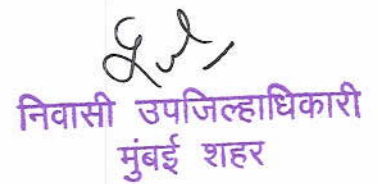 निवासी उपजिल्हाधिकारी
मुंबई शहर